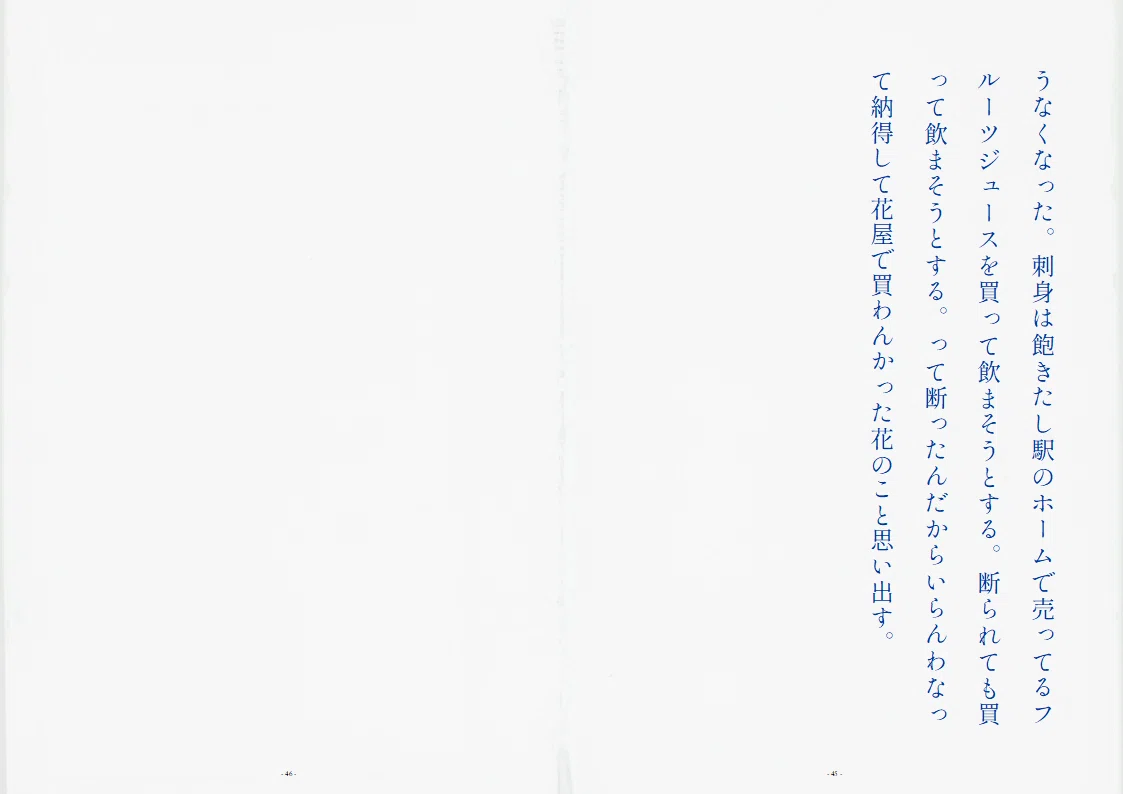 うなくなった。刺身は飽きたし駅のホームで売ってるフ
ルーツジュースを買って飲まそうとする。断られても買
って飲まそうとする。って断ったんだからいらんわなっ
て納得して花屋で買わんかった花のこと思い出す。
- 45 -
- 46 -